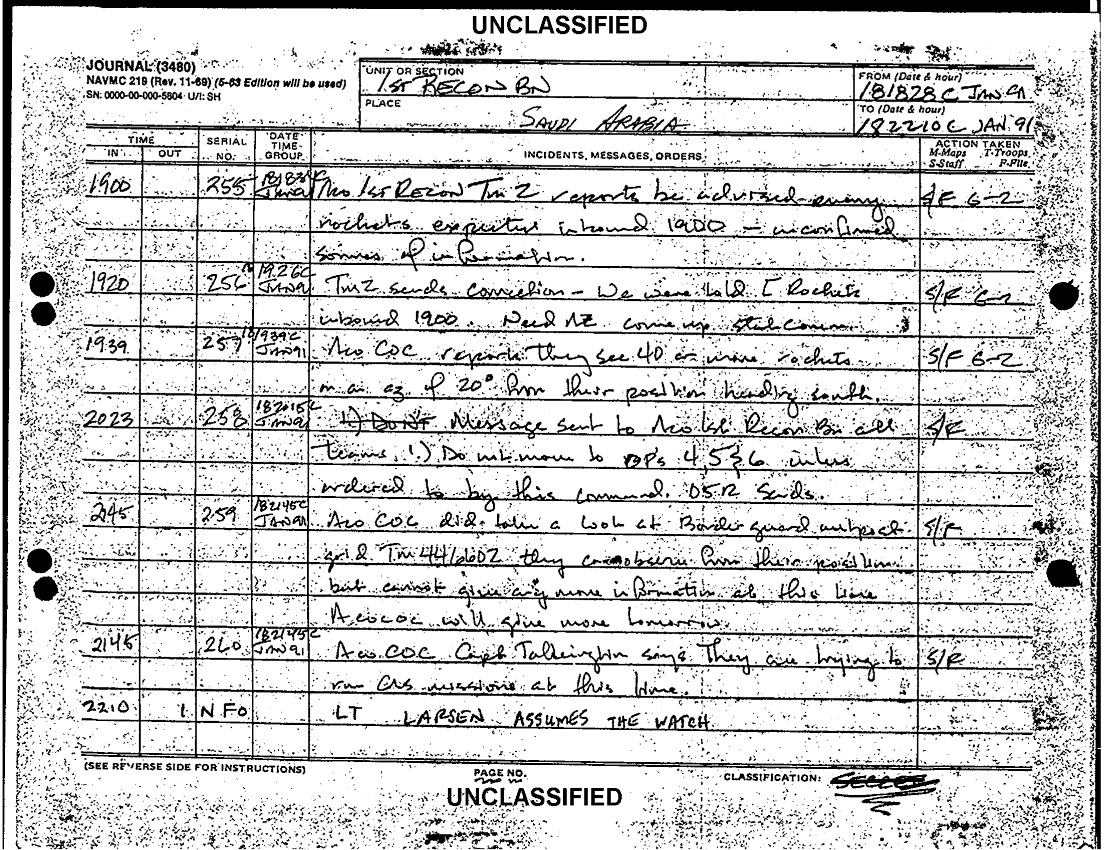 UNCLASSIFIED
JOURNAL (3480)
NAVMC 219 (Rev. 11-69) (5-63 Edition will be used)
SN: 0000-00-000-5804 U/I: SH
UNIT OR SECTION
1ST RECON BN
PLACE
SAUDI ARABIA
FROM (Date & hour)
181828C JAN 91
TO (Date & hour)
182210C JAN 91
TIME
IN OUT
SERIAL NO.
DATE TIME GROUP
INCIDENTS, MESSAGES, ORDERS
ACTION TAKEN
M-Maps T-Troops
S-Staff F-File
1900 255 JAN91 Aco 1st RECON Tm 2 reports be advised enemy S/F G-2
rockets expected inbound 1900 - unconfirmed
source of information.
1920 256 1926C JAN91 Tm 2 sends correction - We were told Rockets S/F G-2
inbound 1900. Need
1939 257 181939C JAN91 Aco COC reports they see 40 or more rockets S/F G-2
on an az of 20° from their position heading south.
2023 258 182015C JAN91 1.) DONT Message sent to Aco 1st Recon Bn all S/F
teams, 1.) Do not move to OP's 4, 5 & 6 unless
ordered to by this command. Sends.
2145 259 182145C JAN91 Aco COC did take a look at Border guard outpost S/F
grid they can observe from their position
but cannot give any more information at this time
Aco COC will give more tomorrow.
2145 260 182145C JAN91 Aco COC Capt Talkington says They are trying to S/F
run CAS missions at this time.
2210 INFO LT LARSEN ASSUMES THE WATCH
(SEE REVERSE SIDE FOR INSTRUCTIONS)
PAGE NO.
CLASSIFICATION:
UNCLASSIFIED